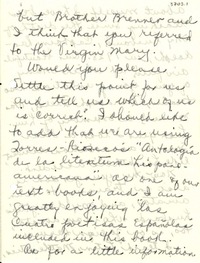 but Brother Brenner and
I think that you referred
to the Virgin Mary.
Would you please
settle this point for us
and tell us which of us
is correct? I should like
to add that we are using
Torres-Rioseco's "Antologia
de la literatura hispano-
americana" as one of our
text-books, and I am
greatly enjoying "las
Cuatro poetisas Españolas"
included in this book.
As for a little information